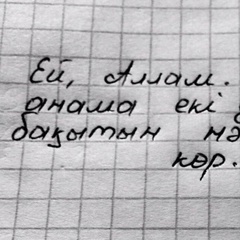 Ей, Аллам.
анама екі
бақытын
көр.